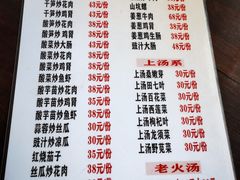 干笋炒花肉 43元/份
干笋炒鸡肾 43元/份
酸笋炒花肉 38元/份
酸笋炒鸡肾 38元/份
酸笋炒大肠 43元/份
酸菜炒大肠 43元/份
酸菜炒花肉 38元/份
酸菜炒鸡肾 38元/份
酸菜炒鱼虾 38元/份
芋苗炒花肉 38元/份
酸芋苗炒鸡肾 38元/份
酸芋苗炒鱼虾 38元/份
蒜蓉炒丝瓜 30元/份
豉汁炒凉瓜 30元/份
红烧茄子 35元/份
丝瓜炒花肉 38元/份
山坑螺 30元/份
姜葱牛肉 68元/份
姜葱炒鸡肾 48元/份
姜葱鸡生肠 48元/份
豉汁大肠 48元/份
上汤系
上汤桑嫩芽 30元/份
上汤田七叶 30元/份
上汤百花菜 30元/份
上汤西洋菜 30元/份
上汤枸杞叶 30元/份
上汤龙须菜 30元/份
上汤野苋菜 30元/份
老火汤